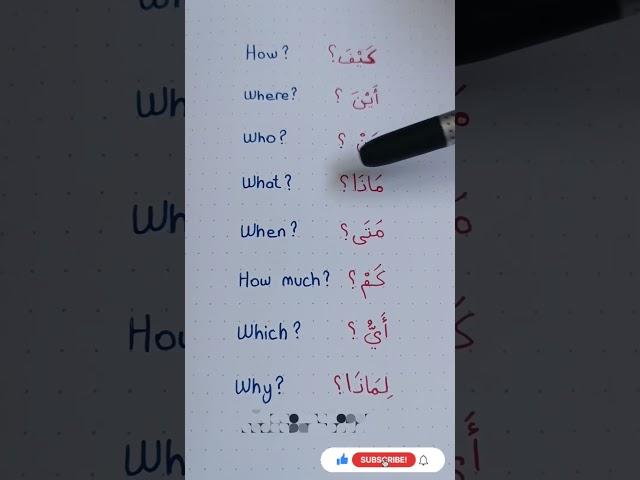 How? كَيْفَ؟
Where? أَيْنَ ؟
Who? مَنْ ؟
What? مَاذَا؟
When? مَتَى؟
How much? كَمْ؟
Which? أَيُّ ؟
Why? لِمَاذَا؟
SUBSCRIBE!